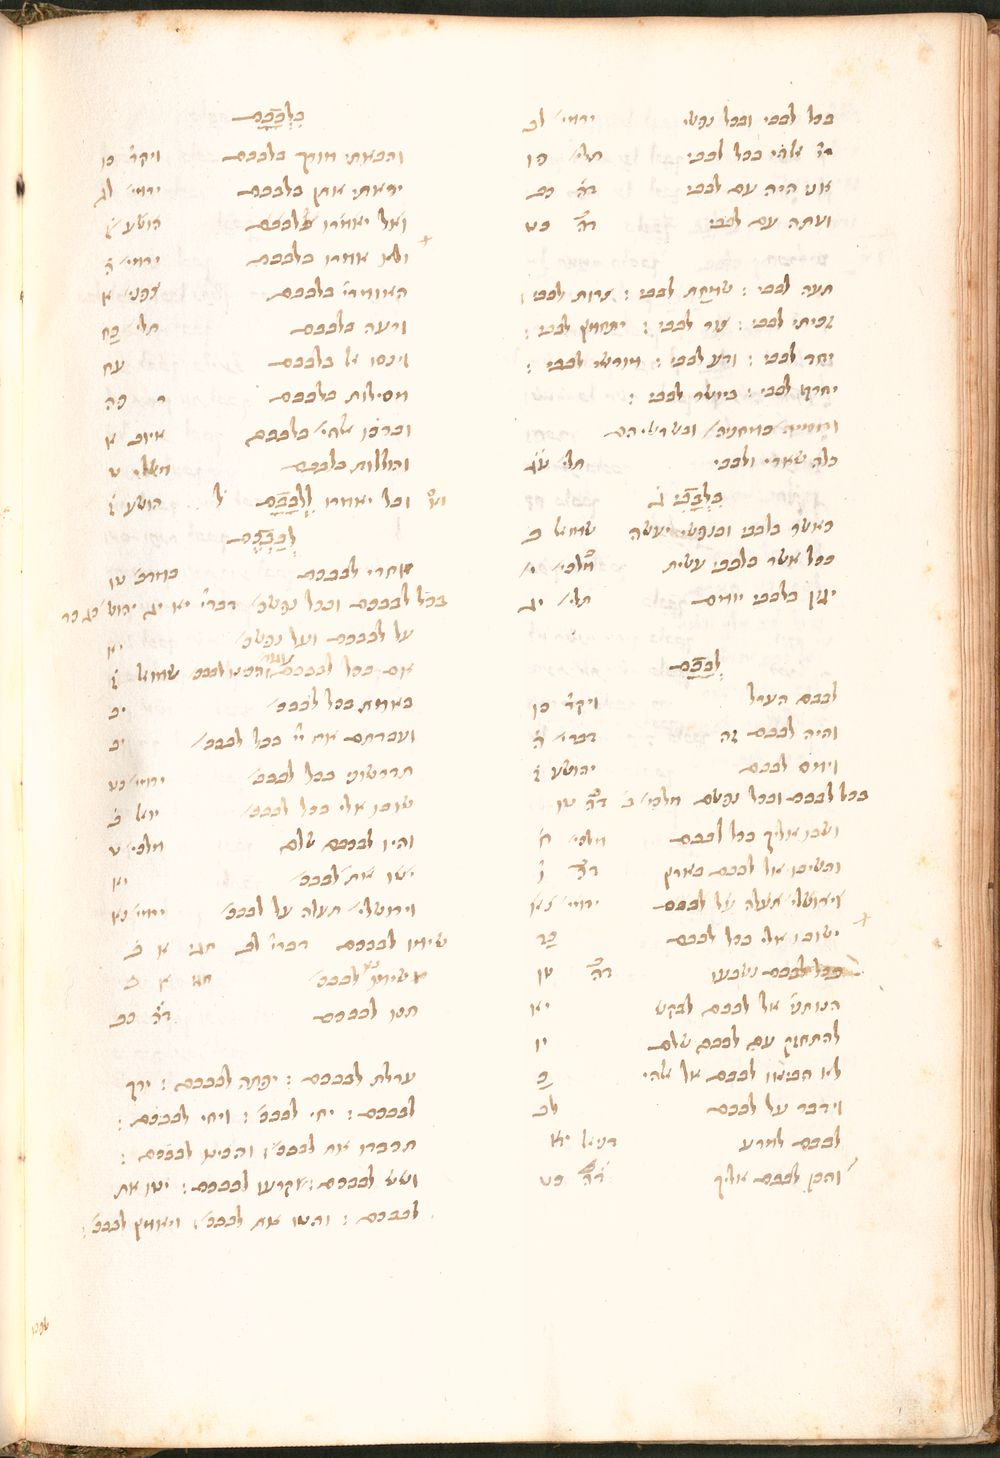 בכל לבבי ובכל נפשי ירמי׳ לב
אלהי בכל לבבי תלי׳
אני היה עם לבבי דה׳ כב
ועתה עם לבבי דה׳ כט
תעה לבבי : שמחת לבבי : צרות לבבי :
זכיתי לבבי : צור לבבי : יתחמץ לבבי :
יחד לבבי : ורע לבבי : מורשי לבבי :
לבבי : ביושר לבבי :
כלה שארי ולבבי תלי׳ עג
בלבבי ג
כאשר בלבבי ובנפשי יעשה שמואל ב
ככל אשר בלבבי עשית מלכי׳ י
יגון בלבבי יומם תלי׳ יג
לבבם
לבבם הערל ויקר׳ כו
והיה לבבם זה דברי׳ ה
וימס לבבם יהושע ז
בכל לבבם ובכל נפשם מלכי׳ ב דה׳ טו
ושבו אליך בכל לבבם מלכי׳ ח
והשיבו אל לבבם בארץ דה׳ ו
ירמי׳ נא
ישובו אלי בכל לבבם כד
בכל לבבם נשבעו דה׳ טו
הנותני׳ את לבבם לבקש יא
להתחזק עם לבבם שלם יו
לא הכינו לבבם אל אלהי כ
וידבר על לבבם לב
לבבם למרע דניאל יא
והכן לבבם אליך דה׳ כט
בלבבם
והבאתי מורך בלבבם ויקר׳ כו
יראתי אתן בלבבם ירמי׳ לב
ואל יאמרו בלבבם
ולא אמרו בלבבם ירמי׳ ה
האומרי׳ בלבבם צפני׳ א
ורעה בלבבם תלי׳ כח
וינסו אל בלבבם עח
מסילות בלבבם פה
וברכו אלהי׳ בלבבם איוב א
והוללות בלבבם ט
ובל יאמרו ללבבם ל הושע ז
לבבכם
אחרי לבבכם במדב׳ טו
בכל לבבכם ובכל נפשכ׳ דברי׳ יא יג יהוש׳ כב כד
על לבבכם ועל נפשכ׳ יא
אם בכל לבבכם והכינו לבבכ׳ שמואל ז
באמת בכל לבבכ׳ יב
ועבדתם את יי׳ בכל לבבכ׳ יב
תדרשוני בכל לבבכ׳ ירמי׳ כט
שובו אלי בכל לבבכ׳ יואל ב
והיו לבבכם שלם מלכי׳ ח
את לבבכ׳
וירושלי׳ תעלה על לבבכ׳ ירמי׳ נא
שימו לבבכם דברי׳ לב חגי א ב
שימו נא לבבכ׳ חגי א ב
תנו לבבכם דה׳ כב
ערלת לבבכם : יפתה לבבכם : ירך
לבבכם : יחי לבבכ׳ : ויחי לבבכם :
תכבדו את לבבכ׳ והכינו לבבכם :
ושש לבבכם : וקרעו לבבכם : יטו את
לבבכם : והטו את לבבכ׳ ויאמץ לבבכ׳ :